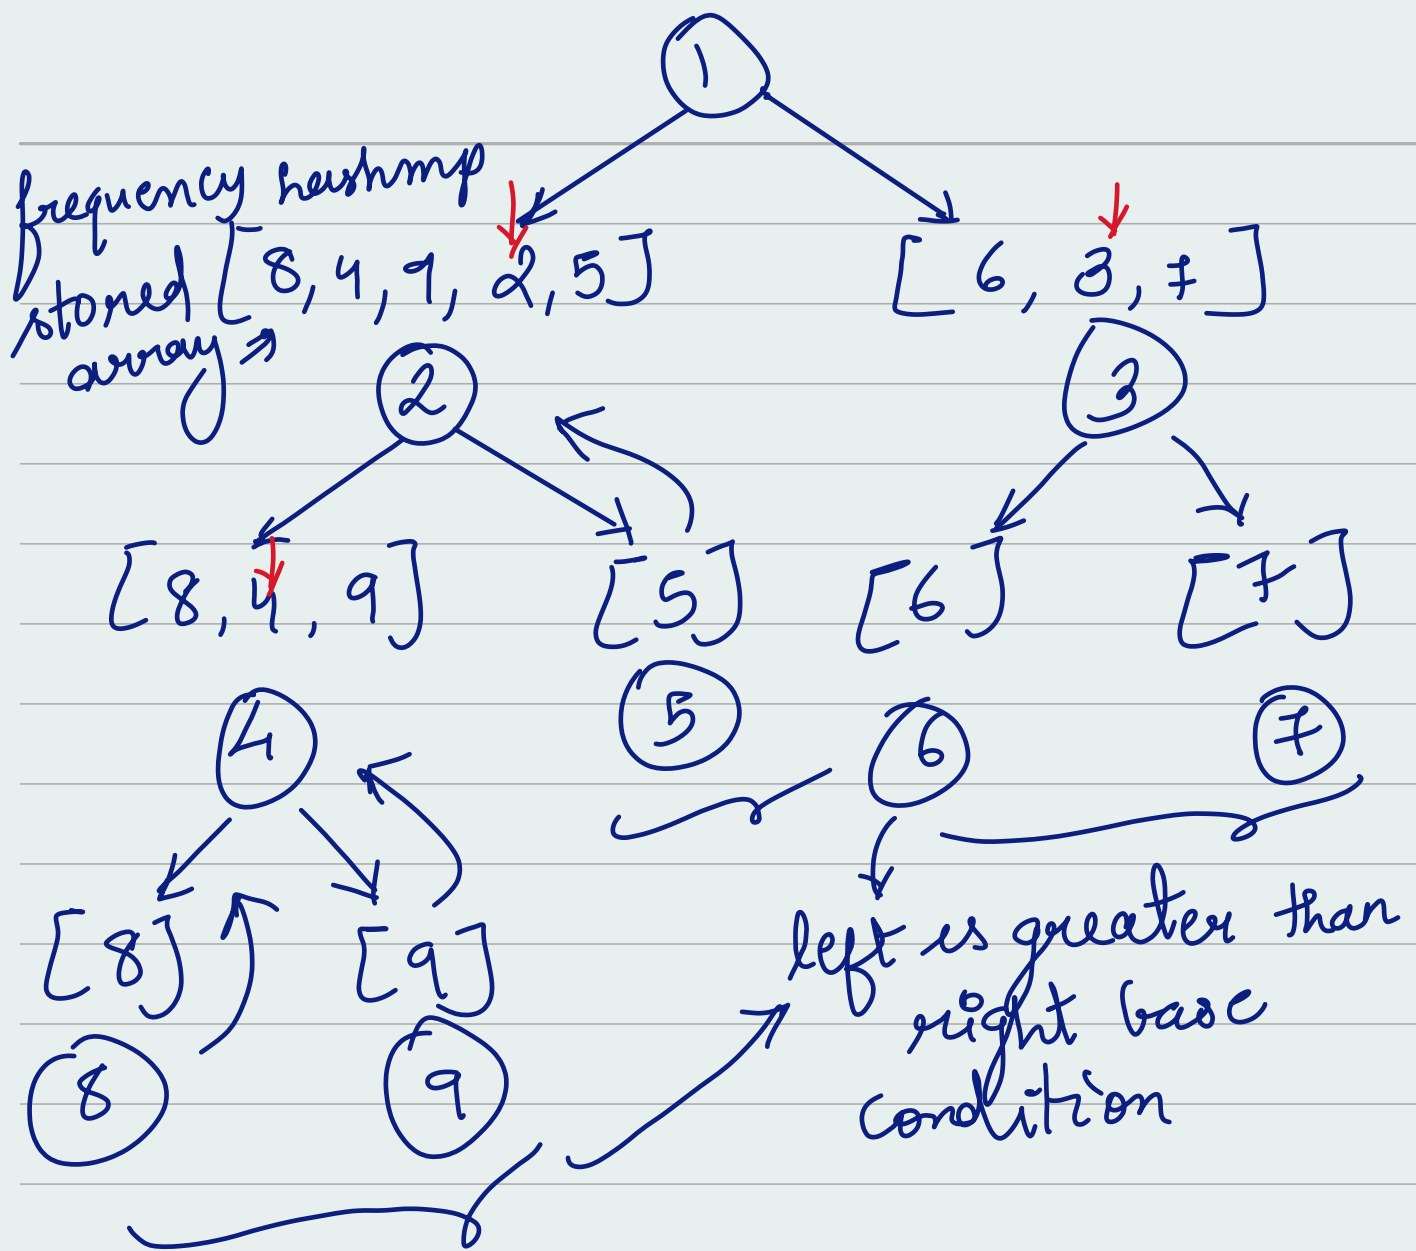 1
frequency hashmp
stored [8, 4, 9, 2, 5] [6, 3, 7]
array
2 3
[8, 4, 9] [5] [6] [7]
4 5 6 7
[8] [9] left is greater than
right base
8 9 condition